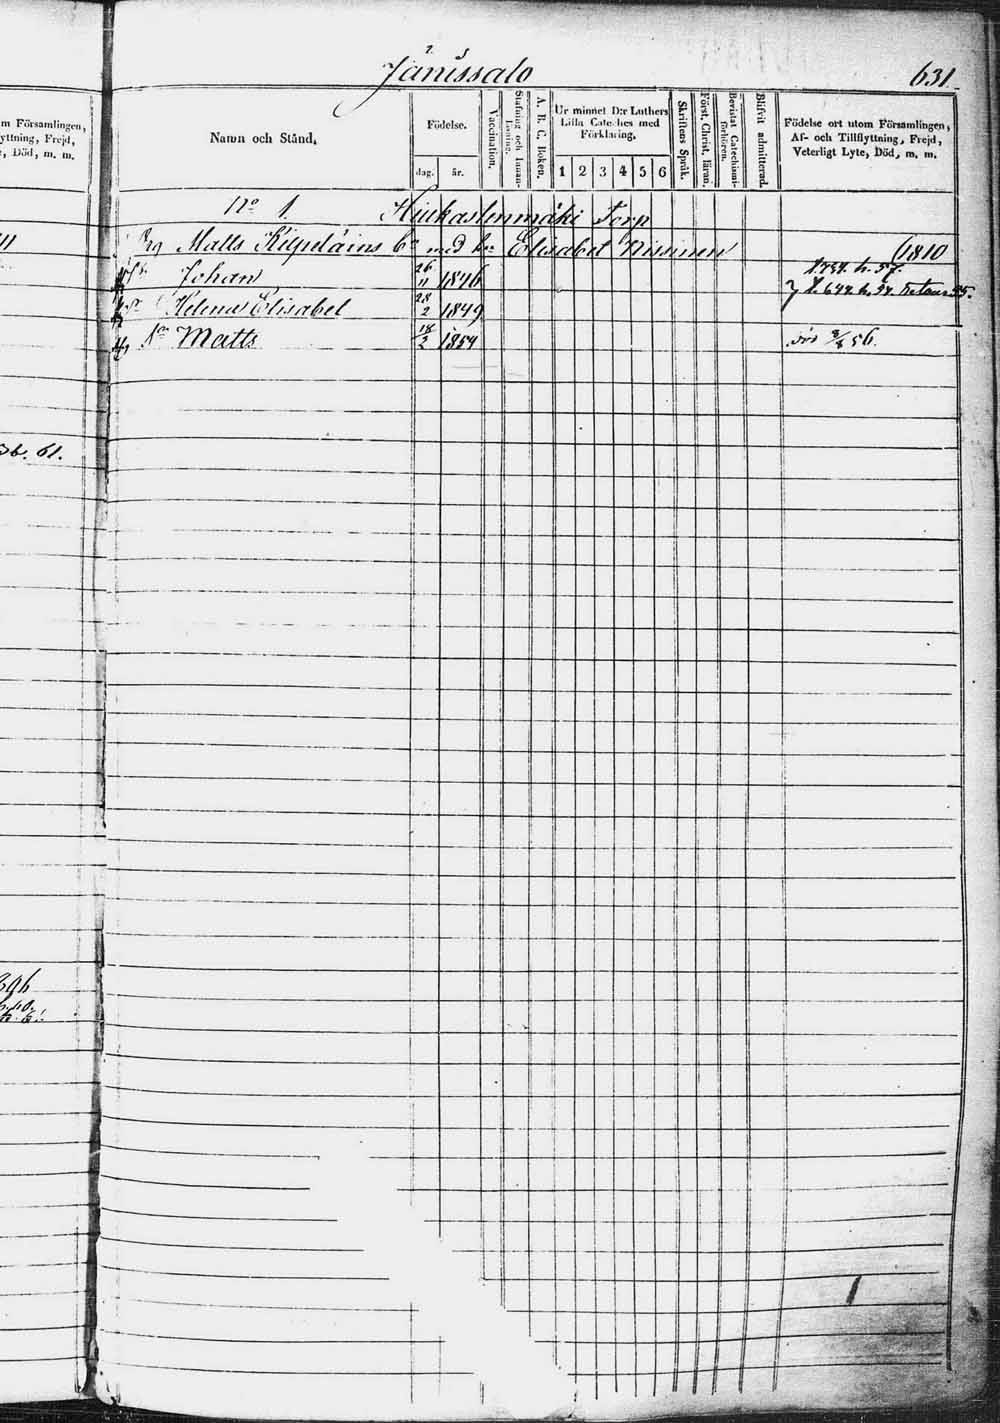 Jänissalo 631
m Församlingen,
yttning, Frejd,
, Död, m. m.
Namn och Stånd.
Födelse.
dag. år.
Vaccination.
Stafning och Innan-
läsning.
A. B. C. Boken.
Ur minnet D:r Luthers
Lilla Cateches med
Förklaring.
1 2 3 4 5 6
Skriftens Språk.
Först. Christ. läran.
Bevistat Catechismi-
förhören.
Blifvit admitterad.
Födelse ort utom Församlingen,
Af- och Tillflyttning, Frejd,
Veterligt Lyte, Död, m. m.
No 1. Torp
Matts Kilpeläins med Elisabet Nissinen 1810
Johan 26/11 1846 h. 57.
Helena Elisabet 28/2 1849
Matts 18/2 1854 56.
61.
396